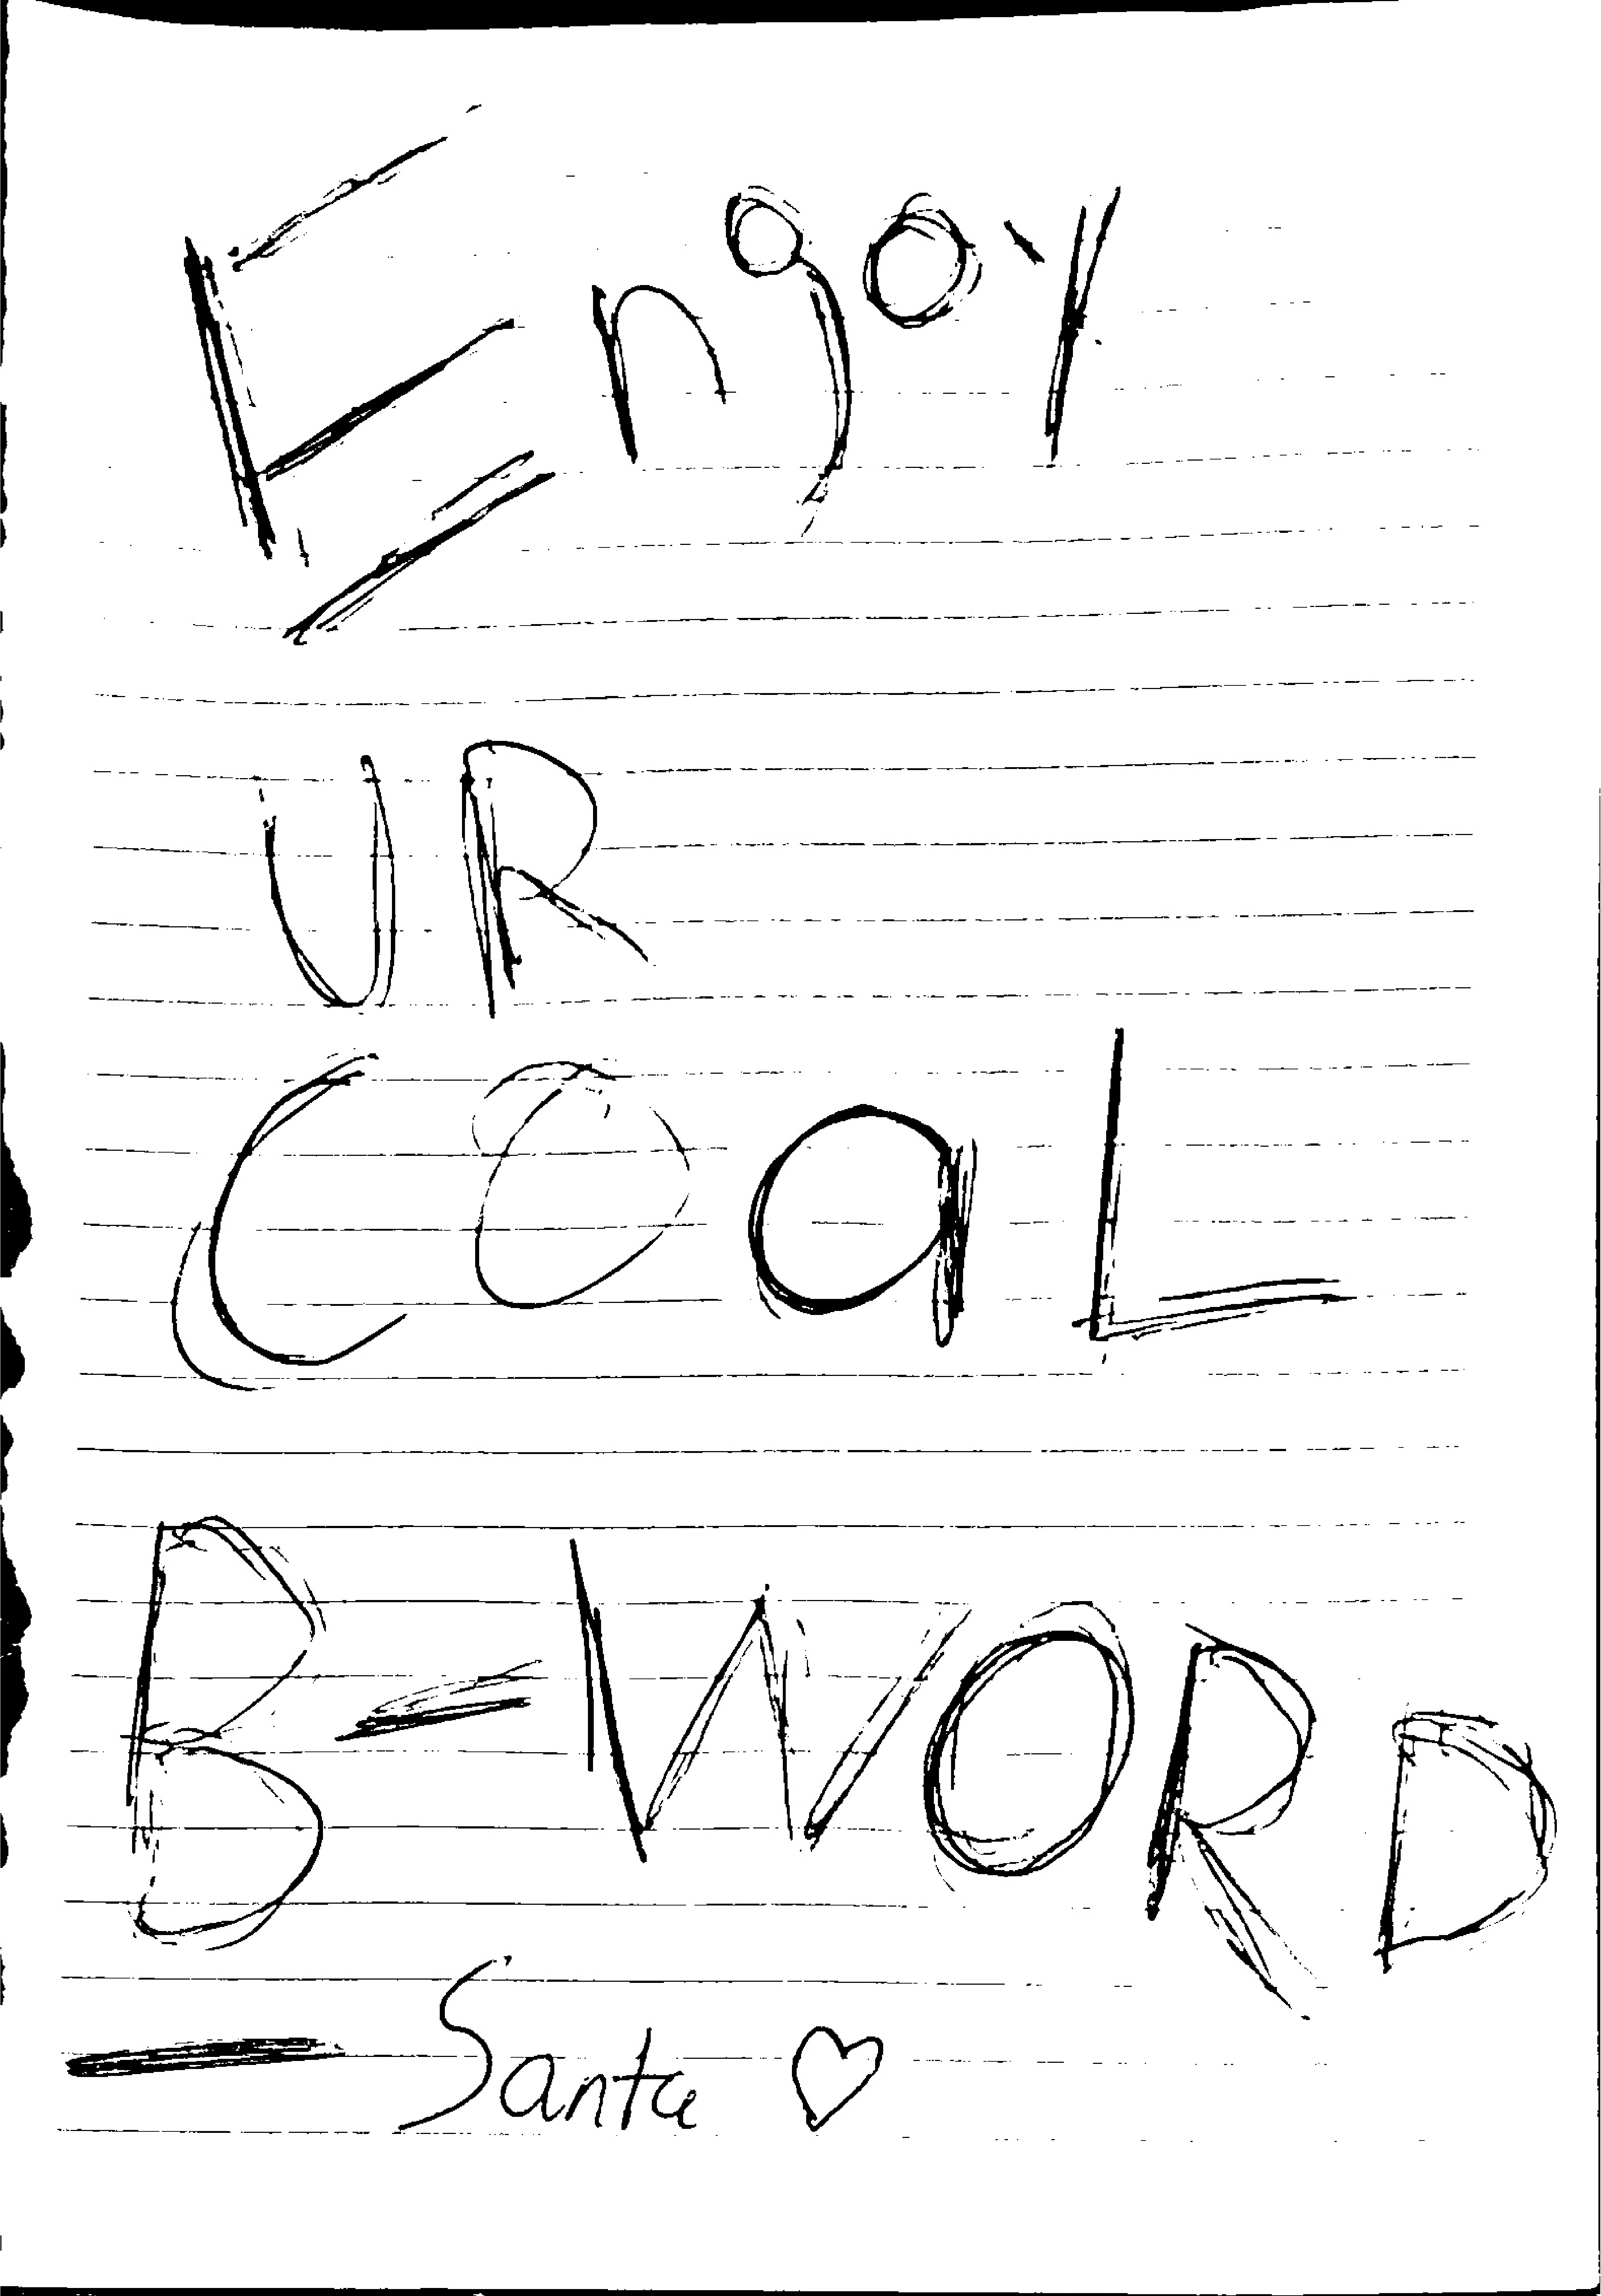 Enjoy
UR
COaL
B-WORD
- Santa ♡